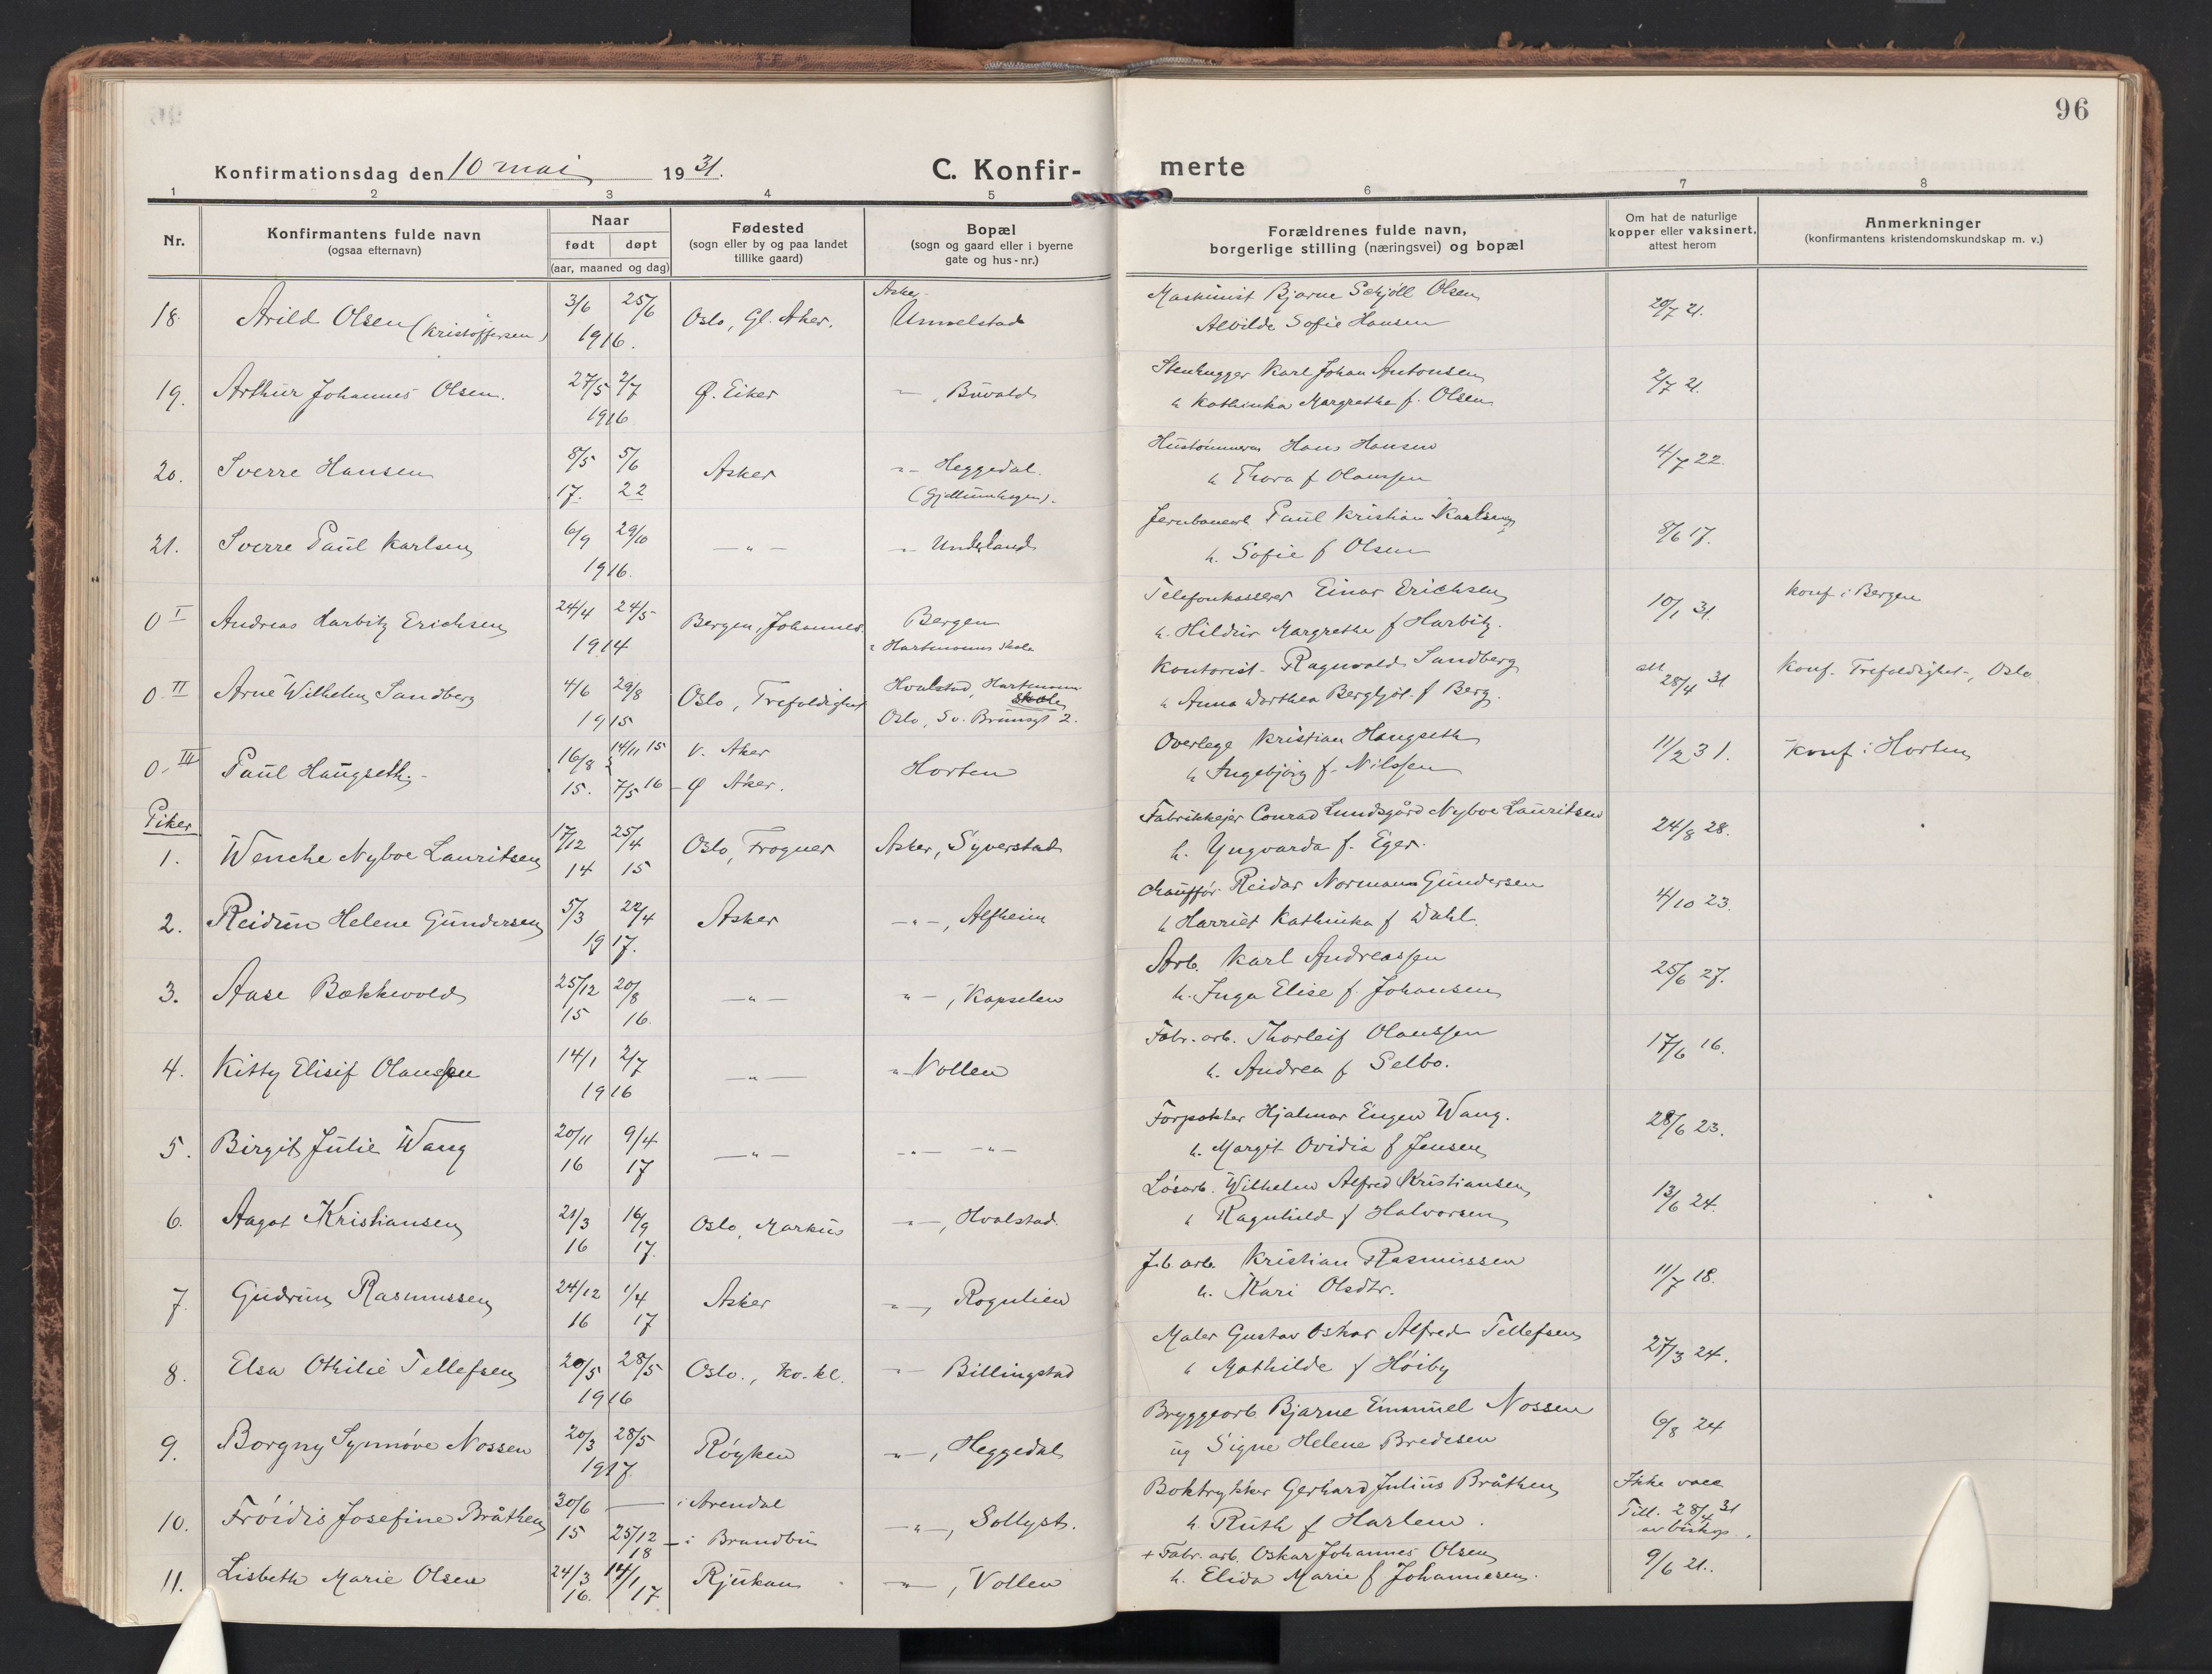 96
Konfirmationsdag den 10 mai 1931.
C. Konfir-
merte
1 2 3 4 5 6 7 8
Nr.
Konfirmantens fulde navn
(ogsaa efternavn)
Naar
født døpt
(aar, maaned og dag)
Fødested
(sogn eller by og paa landet
tillike gaard)
Bopæl
(sogn og gaard eller i byerne
gate og hus-nr.)
Forældrenes fulde navn,
borgerlige stilling (næringsvei) og bopæl
Om hat de naturlige
kopper eller vaksinert,
attest herom
Anmerkninger
(konfirmantens kristendomskundskap m. v.)
Asker Maskinist Bjarne Schjöll Olsen
18. Arild Olsen (Kristoffersen) 3/6 25/6 Oslo, Gl. Aker. Unnelstad 20/7 21.
1916. Alvilde Sofie Hansen
Stenhugger Karl Johan Antonsen
19. Arthur Johannes Olsen. 27/5 2/7 Ø. Eiker —, Büvald 2/7 21.
1916 h Kathinka Margrethe f. Olsen
Hans Hansen
20. Sverre Hansen 8/5 5/6 Asker -"- Heggedal. 4/7 22.
17. 22 h Thora f Olaussen
Paul Kristian Karlsen
21. Sverre Paul Karlsen 6/9 29/10 —"— -"- Underland 8/6 17.
1916. h. Sofie f Olsen
Telefonkasserer Einar Erichsen
0 I Andreas Harbitz Erichsen 24/4 24/5 Bergen, Johannes. Bergen 10/1 31. Konf i Bergen
1914 Hartmanns Skole h. Hildur Margrethe f Harbitz.
Kontorist Ragnvald Sandberg
0. II Arne Wilhelm Sandberg 4/6 29/8 Oslo, Trefoldighet Hvalstad, Hartmann Skole att 28/4 31 Konf. Trefoldighet-, Oslo
1915 Oslo, Sv. Brunsgt 2. h Anna Dorthea Bergljot f Berg.
Overlege Kristian Haugseth
0. III Paul Haugseth. 16/8 14/11 15 V. Aker Horten 11/2 31. Konf i Horten
15. 7/5 16 - Ø Aker. h Ingebjörg f. Nilssen
Piker
Fabrikkejer Conrad Lundsgård Nyboe Lauritsen
1. Wenche Nyboe Lauritsen 17/12 25/4 Oslo, Frogner Asker, Syverstad 24/8 28.
14 15 h. Yngvarda f. Eger.
Chauffør Reidar Norman Gundersen
2. Reidun Helene Gundersen 5/3 22/4 Asker -"-, Alfheim 4/10 23.
1917. h Harriet Kathinka f Dahl.
Arb. Karl Andreassen
3. Aase Bækkevold 25/12 20/8 —"— "-, Kapselen 25/6 27.
15 16. h. Inga Elise f. Johansen
Fabr. arb. Thorleif Olaussen
4. Kitty Elisif Olaussen 14/1 2/7 —"— "- Vollen 17/6 16.
1916 h. Andrea f Selbo.
Forpakter Hjalmar Eugen Wang.
5. Birgit Julie Wang 20/11 9/4 —"— -"- -"- 28/6 23.
16 17 h. Margit Ovidia f Jensen
Løsarb. Wilhelm Alfred Kristiansen
6. Aagot Kristiansen 21/3 16/9 Oslo, Markus -"-, Hvalstad. 13/6 24.
16 17. h Ragnhild f Halvorsen
J.b. arb. Kristian Rasmussen
7. Gudrun Rasmussen 24/12 1/4 Asker -"-, Rognlien 11/7 18.
16 17 h. Kari Olsdtr.
Maler Gustav Oskar Alfred Tellefsen
8. Elsa Othilie Tellefsen 20/5 28/5 Oslo., Ko.kl. -"- Billingstad 27/3 24.
1916 h Mathilde f Høiby
Bryggearb. Bjarne Emanuel Nossen
9. Borgny Synnøve Nossen 20/3 28/5 Røyken -"-, Heggedal 6/8 24
1917. ug Signe Helene Bredesen
Boktrykker Gerhard Julius Bråthen Ikke vacc
10. Frøidis Josefine Bråthen 30/6 — i Arendal -"-, Sollyst. Till. 28/4 31
15 25/12 18 - i Brandbu h. Ruth f Harlem. av biskop.
+ Fabr. arb. Oskar Johannes Olsen
11. Lisbeth Marie Olsen 24/3 14/1 Rjukan -"-, Vollen 9/6 21.
16. 17 h. Elida Marie f Johannesen.